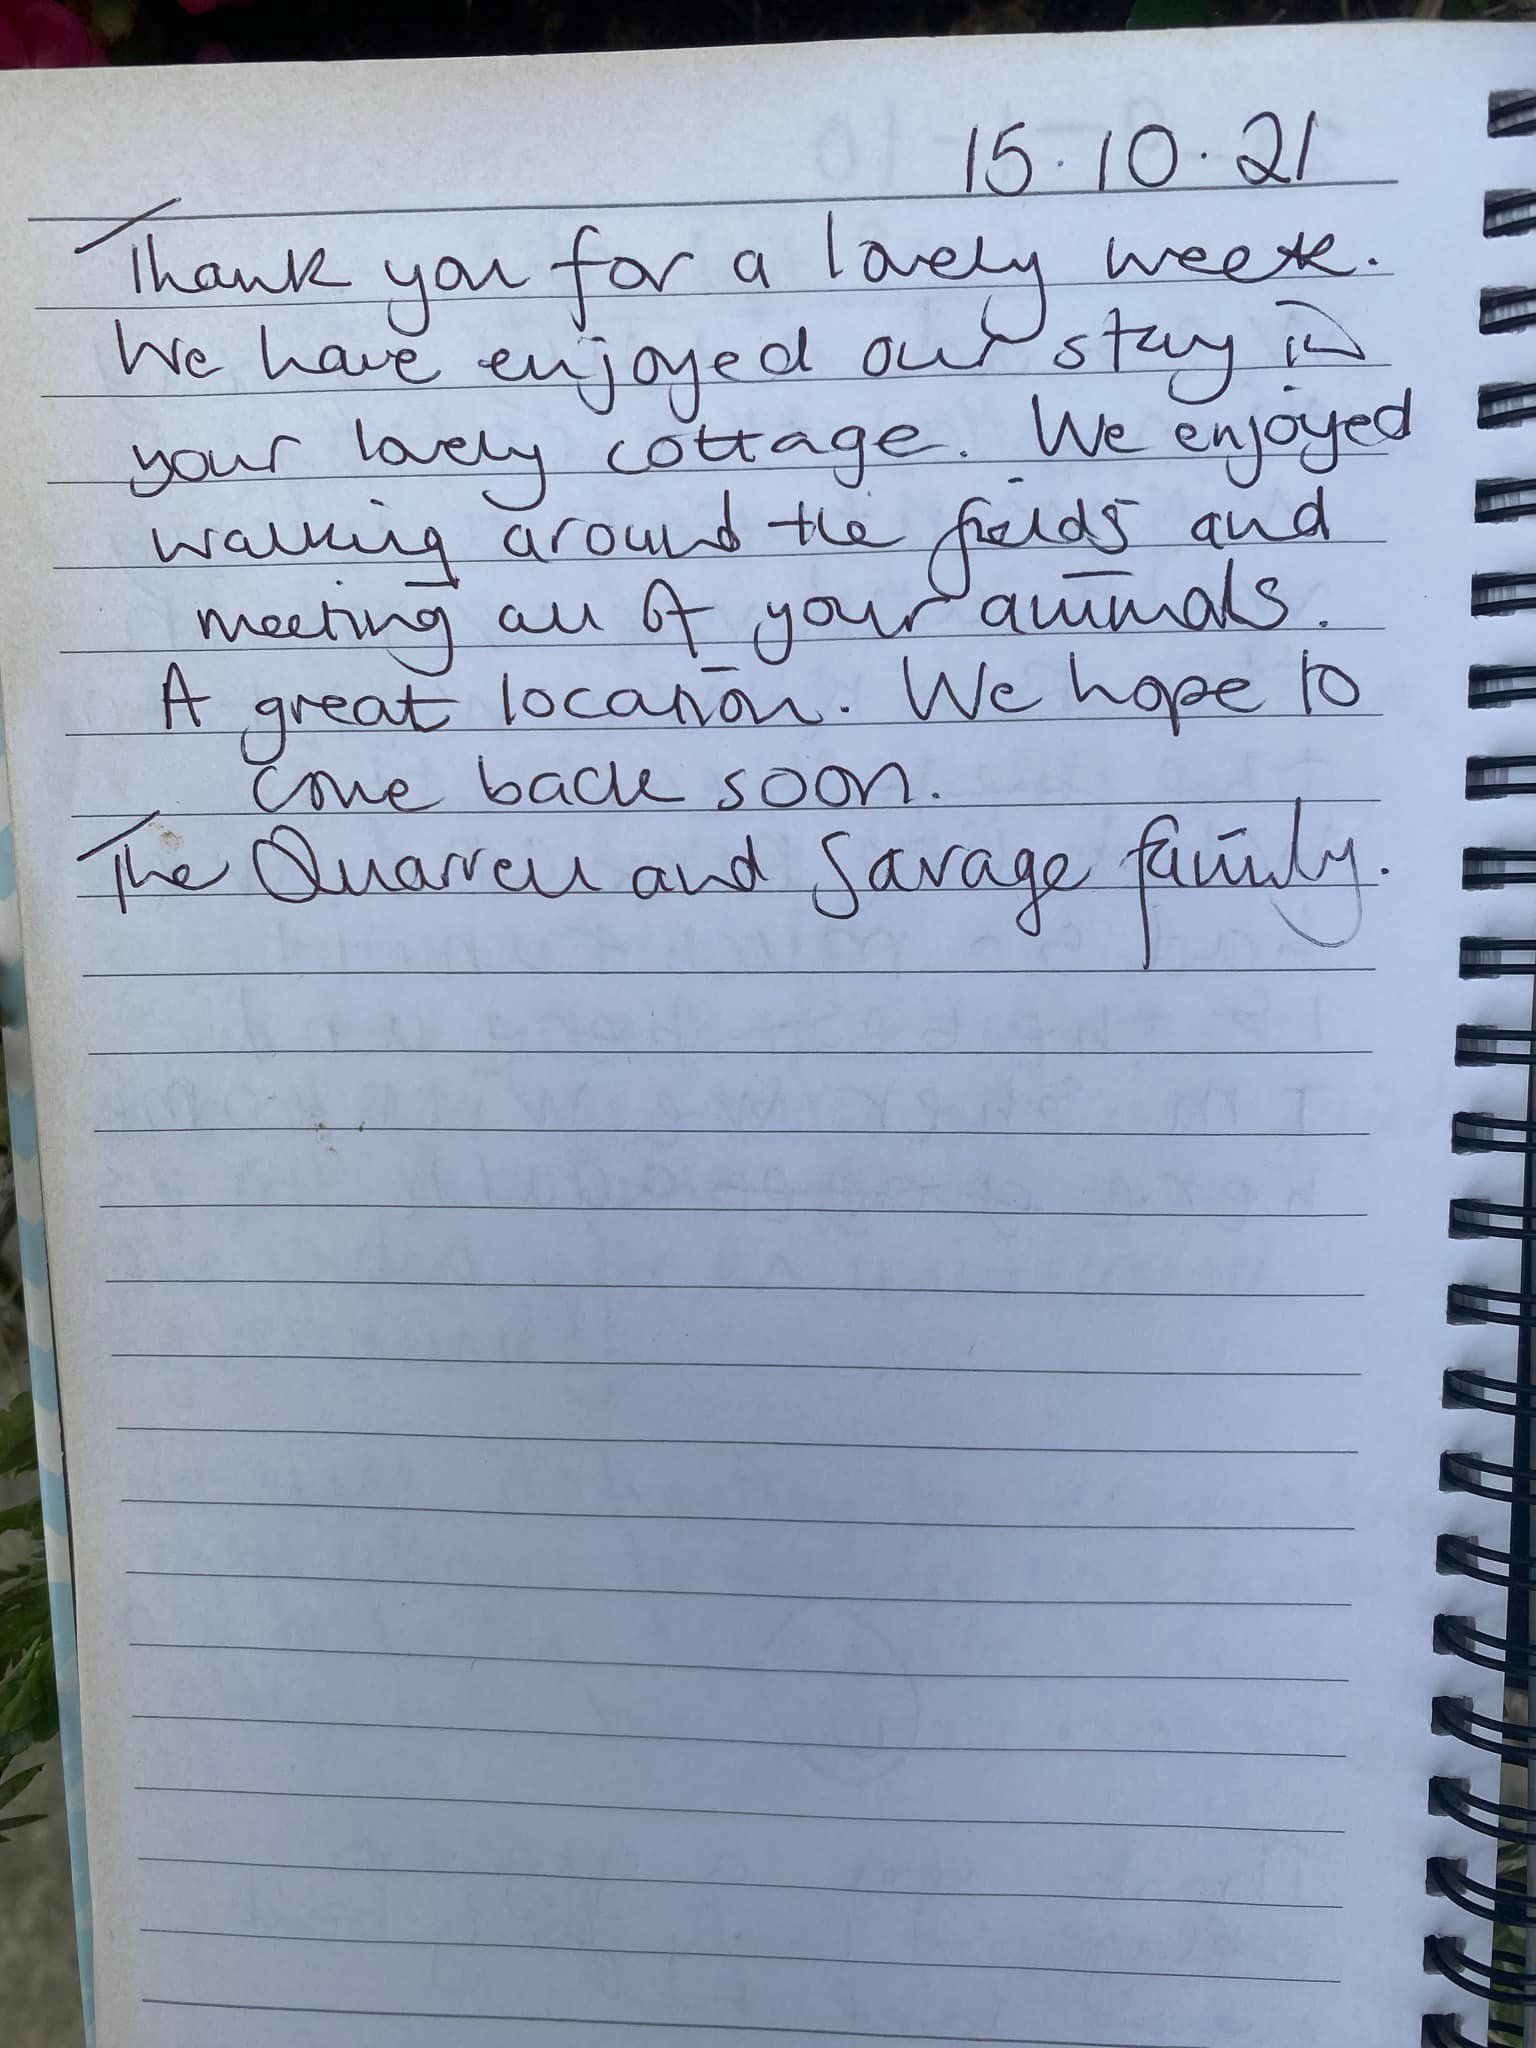 15.10.21
Thank you for a lovely week.
We have enjoyed our stay in
your lovely cottage. We enjoyed
walking around the fields and
meeting all of your animals.
A great location. We hope to
come back soon.
The Quarrell and Savage family.